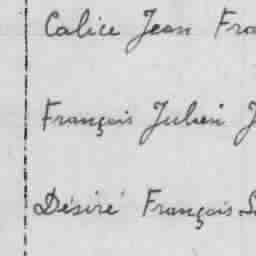 Calice Jean Fra
François Julien J
Désiré François S